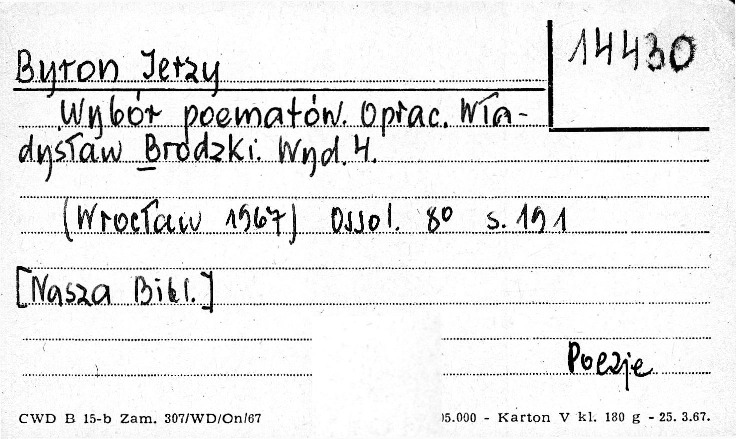 14430
Byron Jerzy
Wybór poematów. Oprac. Wła-
dysław Brodzki. Wyd. 4.
(Wrocław 1967) Ossol. 8º s. 191
[Nasza Bibl.]
Poezje
CWD B 15-b Zam. 307/WD/On/67
5.000 - Karton V kl. 180 g - 25. 3.67.